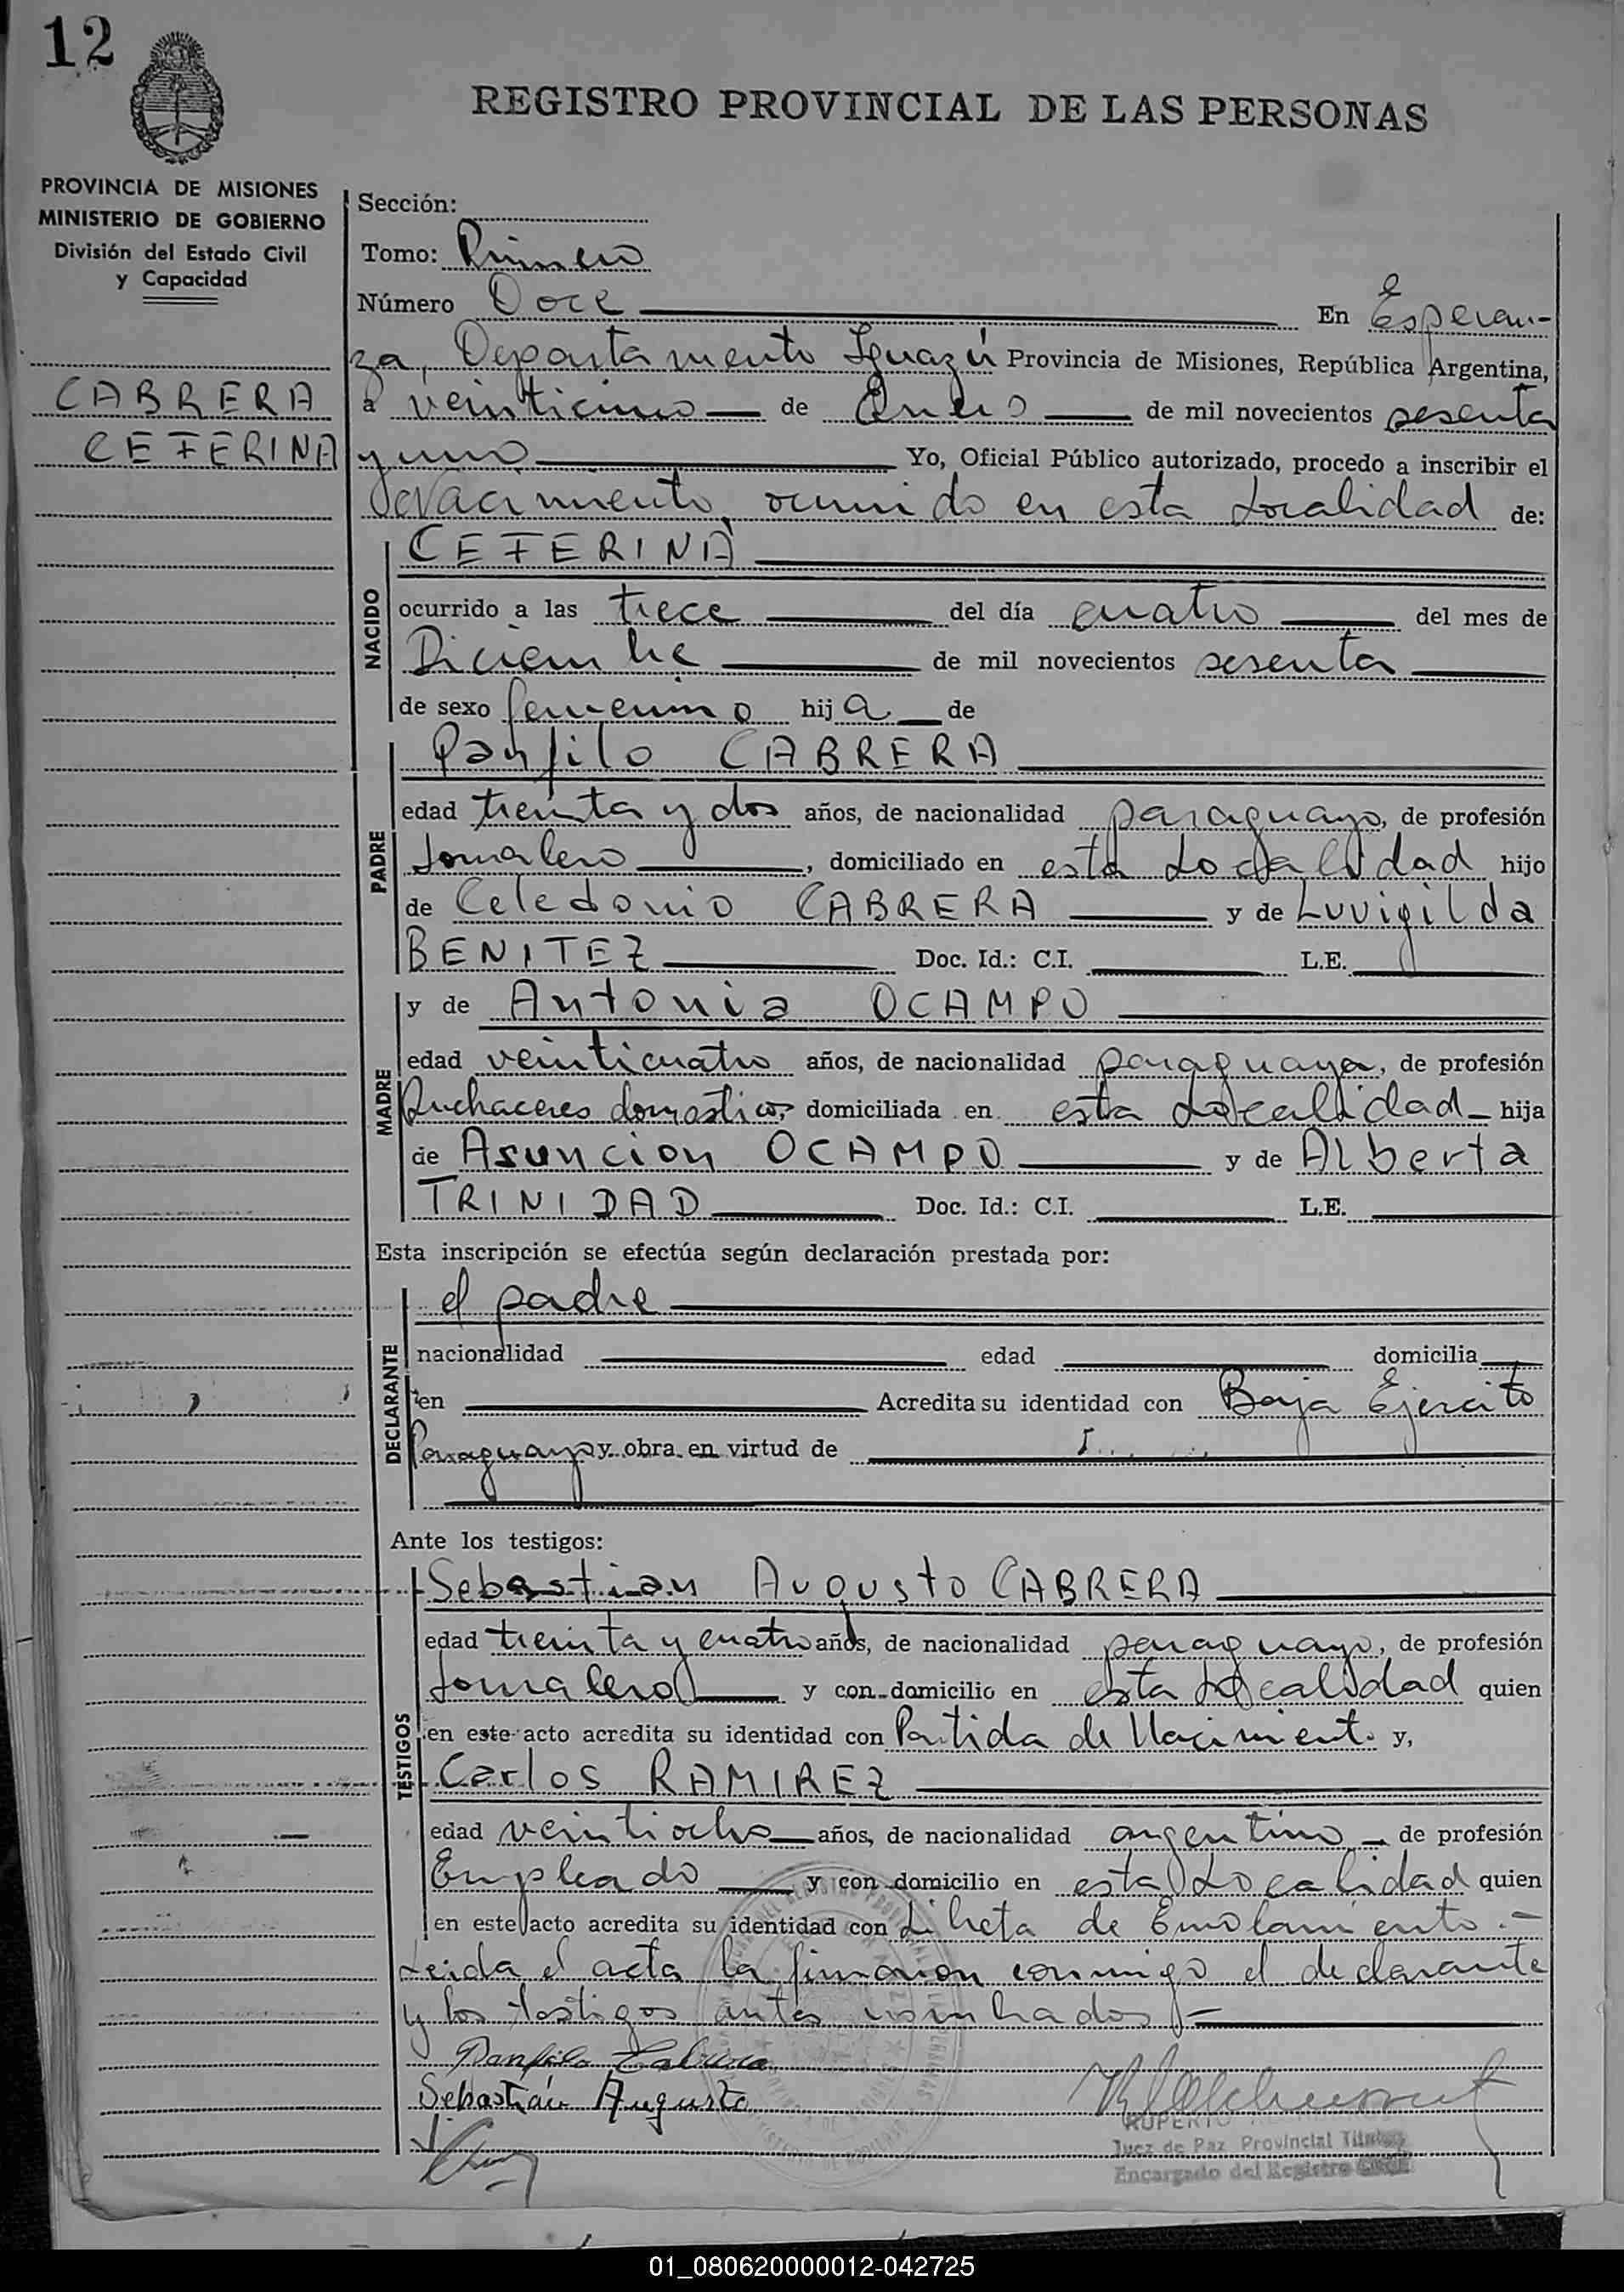 12
REGISTRO PROVINCIAL DE LAS PERSONAS
PROVINCIA DE MISIONES
MINISTERIO DE GOBIERNO
División del Estado Civil
y Capacidad
CABRERA
CEFERINA
Sección:
Tomo: Primero
Número Doce En Esperan-
za, Departamento Iguazú Provincia de Misiones, República Argentina,
a veinticinco de Enero de mil novecientos sesenta
y uno Yo, Oficial Público autorizado, procedo a inscribir el
Nacimiento, ocurrido en esta Localidad de:
NACIDO
CEFERINA
ocurrido a las trece del día cuatro del mes de
Diciembre de mil novecientos sesenta
de sexo femenino hija de
PADRE
Panfilo CABRERA
edad treinta y dos años, de nacionalidad paraguayo, de profesión
Jornalero, domiciliado en esta Localidad hijo
de Celedonio CABRERA y de Luvigilda
BENITEZ Doc. Id.: C.I. L.E.
MADRE
y de Antonia OCAMPO
edad veinticuatro años, de nacionalidad paraguaya, de profesión
Quehaceres domesticos, domiciliada en esta Localidad hija
de Asuncion OCAMPO y de Alberta
TRINIDAD Doc. Id.: C.I. L.E.
Esta inscripción se efectúa según declaración prestada por:
DECLARANTE
el padre
nacionalidad edad domicilia
en Acredita su identidad con Baja Ejercito
Paraguayo y obra en virtud de
Ante los testigos:
TESTIGOS
Sebastian Augusto CABRERA
edad treinta y cuatro años, de nacionalidad paraguayo, de profesión
Jornalero y con domicilio en esta Localidad quien
en este acto acredita su identidad con Partida de Nacimiento y,
Carlos RAMIREZ
edad veintiocho años, de nacionalidad argentino de profesión
Empleado y con domicilio en esta Localidad quien
en este acto acredita su identidad con Libreta de Enrolamiento.-
Leida el acta la firmaron conmigo el declarante
y los testigos antes nombrados.-
Panfilo Cabrera
Sebastián Augusto
RUPERTO
Juez de Paz Provincial Titular
Encargado del Registro Civil
01_080620000012-042725